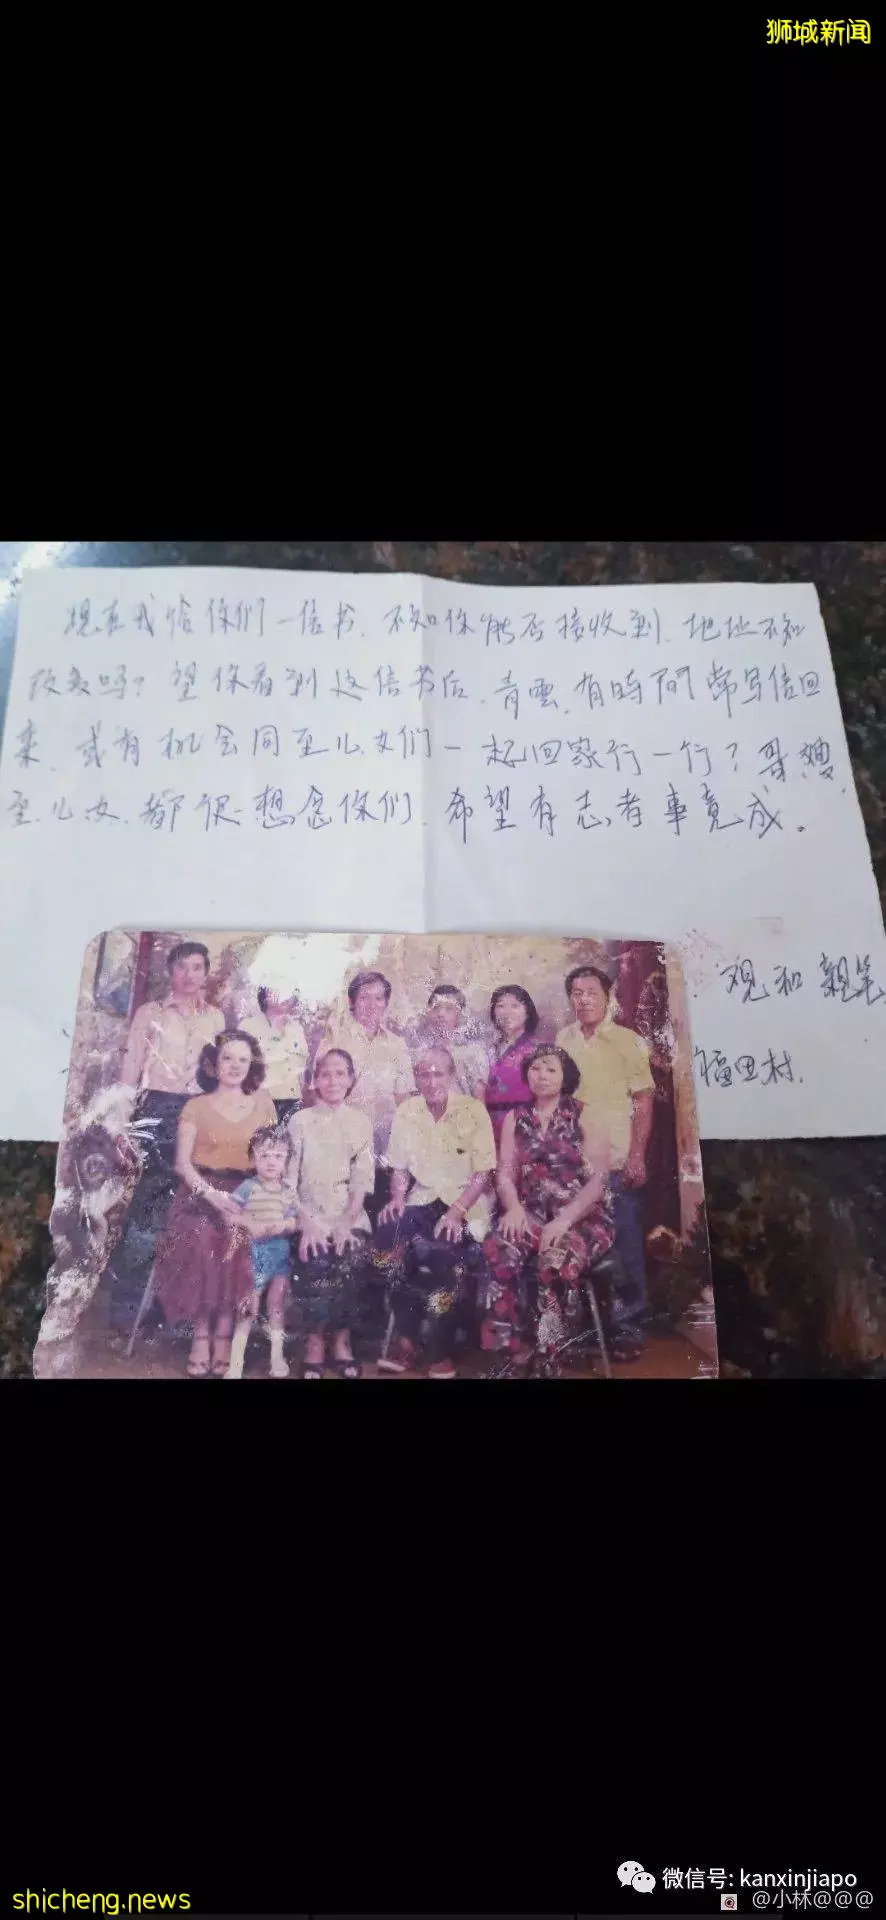 狮城新闻
现在我给你们一信书.不知你能否接收到.地址不知
改变吗?望你看到这信书后.青雲.有時间常写信回
来.或有机会同至儿.女们一起回家行一行?哥.嫂.
至.儿.女.都很想念你们.希望有志者事竟成。
观和親笔
福田村.
微信号: kanxinjiapo
@小林@@@
shicheng.news